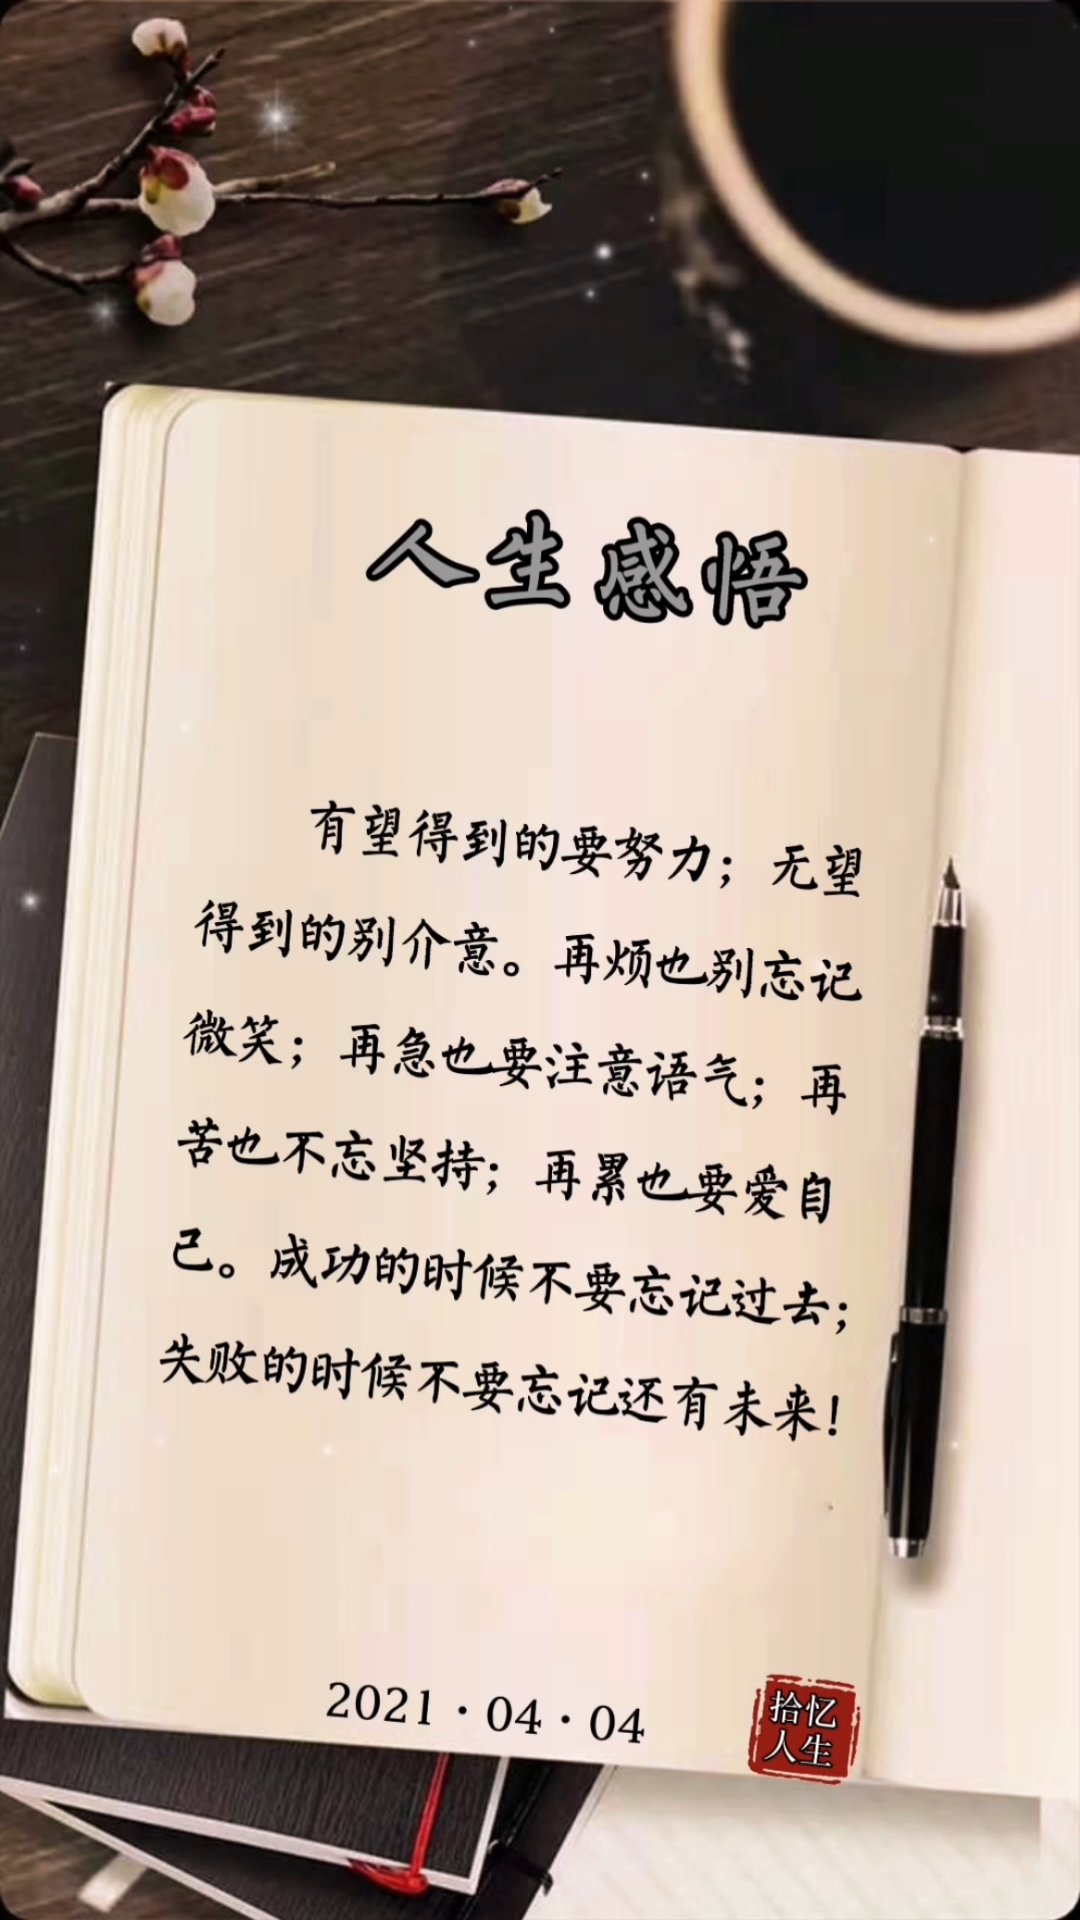 人生感悟
有望得到的要努力；无望
得到的别介意。再烦也别忘记
微笑；再急也要注意语气；再
苦也不忘坚持；再累也要爱自
己。成功的时候不要忘记过去；
失败的时候不要忘记还有未来！
2021·04·04
拾忆
人生